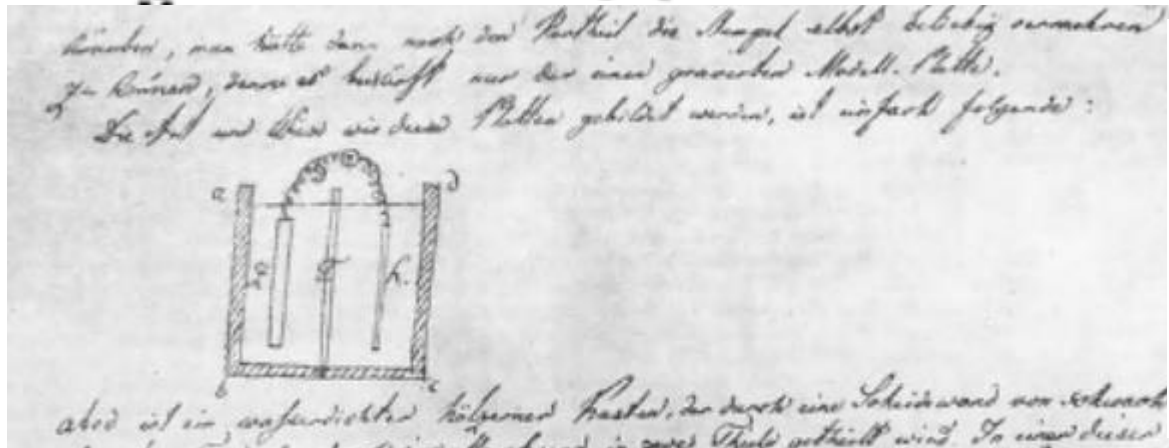 könnten, man hätte dann noch den Vortheil die Stempel selbst beliebig vermehren
zu können, denn es bedürfte nur der einen gravirten Modell-Platte.
Die Art und Weise wie diese Platten gebildet werden, ist einfach folgende:
a d
T K
b c
abcd ist ein wasserdichter hölzerner Kasten, der durch eine Scheidewand von schwach
in zwei Theile getheilt wird. In einen dieser